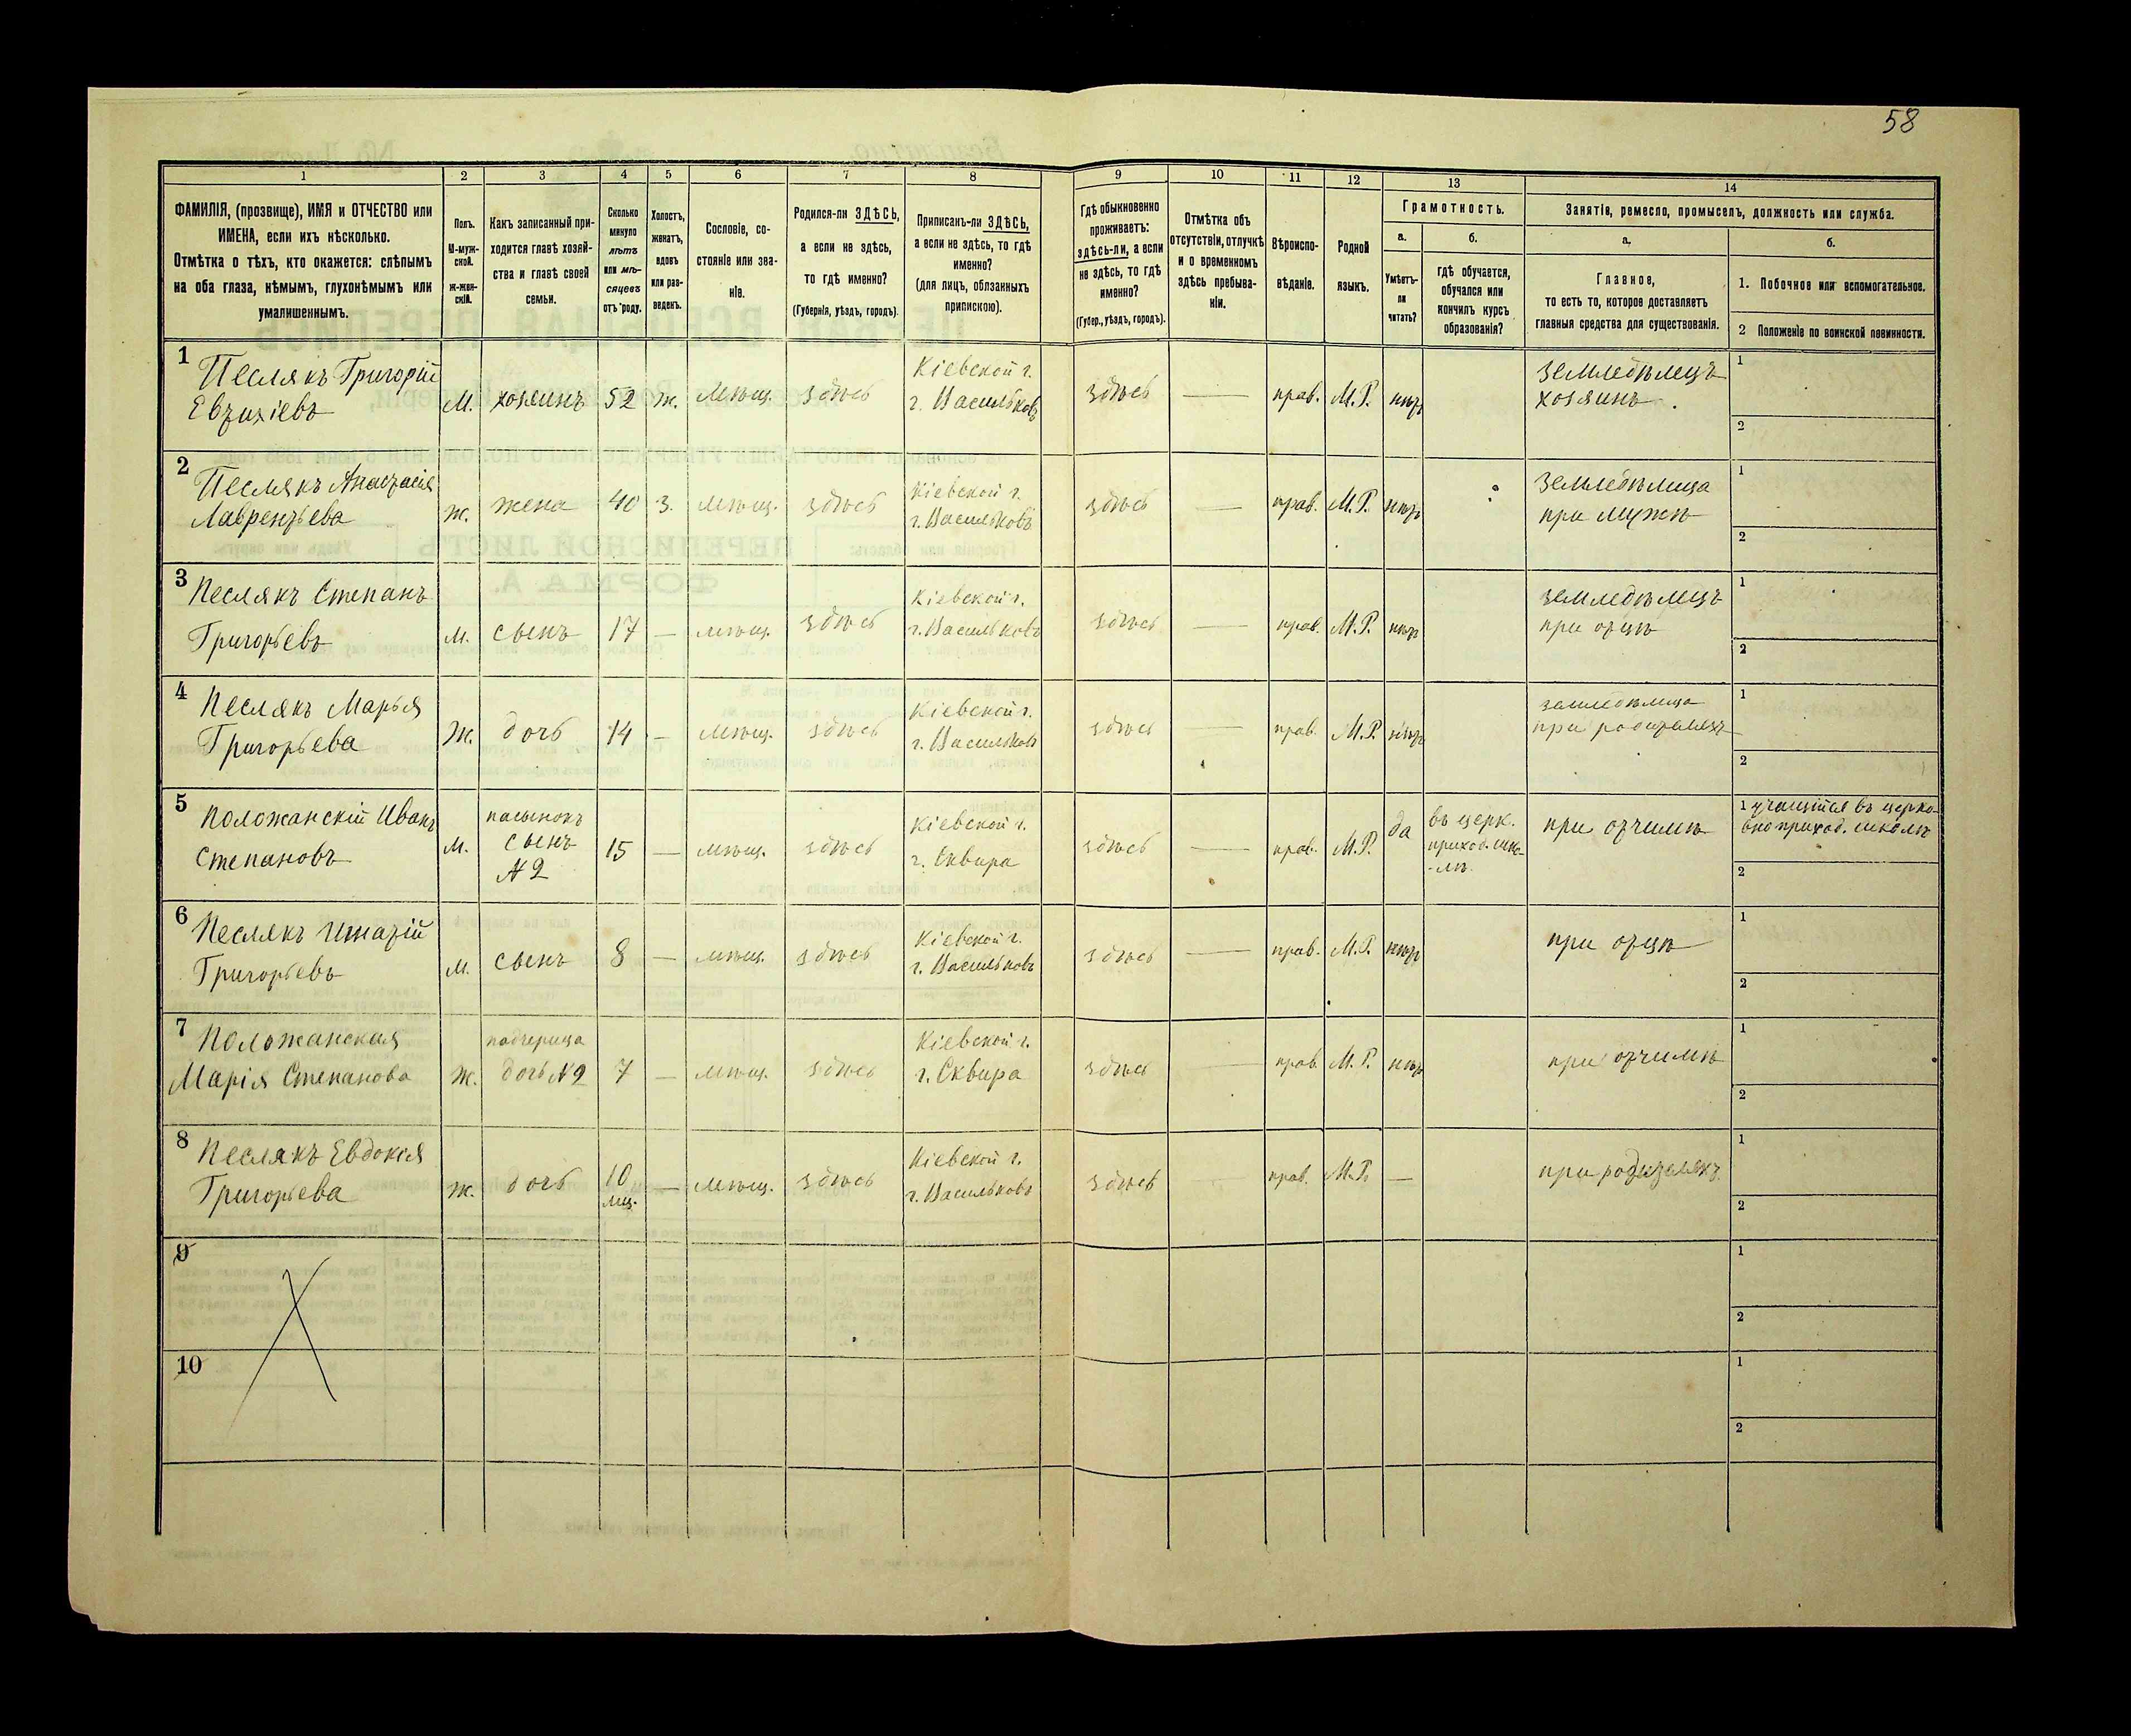 58
1 2 3 4 5 6 7 8 9 10 11 12 13 14
ФАМИЛІЯ, (прозвище), ИМЯ и ОТЧЕСТВО или
ИМЕНА, если ихъ нѣсколько.
Отмѣтка о тѣхъ, кто окажется: слѣпымъ
на оба глаза, нѣмымъ, глухонѣмымъ или
умалишеннымъ.
Полъ.
М-муж-
ской.
Ж-жен-
скій.
Какъ записанный при-
ходится главѣ хозяй-
ства и главѣ своей
семьи.
Сколько
минуло
лѣтъ
или мѣ-
сяцевъ
отъ роду.
Холостъ,
женатъ,
вдовъ
или раз-
веденъ.
Сословіе, со-
стояніе или зва-
ніе.
Родился-ли ЗДѢСЬ,
а если не здѣсь,
то гдѣ именно?
(Губернія, уѣздъ, городъ).
Приписанъ-ли ЗДѢСЬ,
а если не здѣсь, то гдѣ
именно?
(для лицъ, обязанныхъ
припискою).
Гдѣ обыкновенно
проживаетъ:
здѣсь-ли, а если
не здѣсь, то гдѣ
именно?
(Губер., уѣздъ, городъ).
Отмѣтка объ
отсутствіи, отлучкѣ
и о временномъ
здѣсь пребыва-
ніи.
Вѣроиспо-
вѣданіе.
Родной
языкъ.
Грамотность.
а.
Умѣетъ-
ли
читать?
б.
гдѣ обучается,
обучался или
кончилъ курсъ
образованія?
Занятіе, ремесло, промыселъ, должность или служба.
а.
Главное,
то есть то, которое доставляетъ
главныя средства для существованія.
б.
1. Побочное или вспомогательное.
2 Положеніе по воинской повинности.
1 Песлякъ Григорій
Евтихіевъ
М. хозяинъ 52 ж. мѣщ. здѣсь
Кіевской г.
г. Васильковъ
здѣсь — прав. М.Р. нѣтъ
земледѣлецъ
хозяинъ
1
2
2 Песлякъ Анастасія
Лаврентьева
ж. жена 40 з. мѣщ. здѣсь
Кіевской г.
г. Васильковъ
здѣсь — прав. М.Р. нѣтъ
земледѣлица
при мужѣ
1
2
3 Песлякъ Степанъ
Григорьевъ
м. сынъ 17 — мѣщ. здѣсь
Кіевской г.
г. Васильковъ
здѣсь — прав. М.Р. нѣтъ
земледѣлецъ
при отцѣ
1
2
4 Песлякъ Марья
Григорьева
Ж. дочь 14 — мѣщ. здѣсь
Кіевской г.
г. Васильковъ
здѣсь — прав. М.Р. нѣтъ
земледѣлица
при родителяхъ
1
2
5 Положанскій Иванъ
Степановъ
м.
пасынокъ
сынъ
№ 2
15 — мѣщ. здѣсь
Кіевской г.
г. Сквира
здѣсь — прав. М.Р. да
въ церк.
приход. шко-
-лѣ.
при отчимѣ
1 учащійся въ церко-
вно приход. школѣ
2
6 Песлякъ
Григорьевъ
м. сынъ 8 — мѣщ. здѣсь
Кіевской г.
г. Васильковъ
здѣсь — прав. М.Р. нѣтъ
при отцѣ
1
2
7 Положанская
Марія Степанова
Ж.
падчерица
дочь № 2
7 — мѣщ. здѣсь
Кіевской г.
г. Сквира
здѣсь — прав М.Р. нѣтъ
при отчимѣ
1
2
8 Песлякъ Евдокія
Григорьева
ж. дочь
10
мц.
— мѣщ. здѣсь
Кіевской г.
г. Васильковъ
здѣсь — прав. М.Р. —
при родителяхъ
1
2
9
1
2
10
1
2